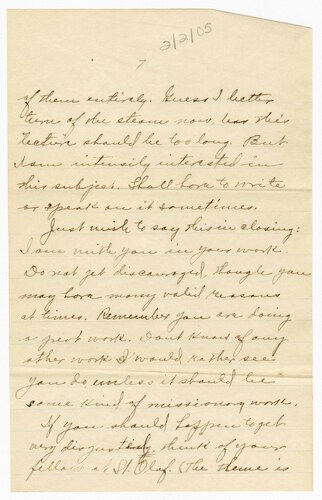 2/2/05
7
of them entirely. Guess I better
turn of the steam now, less this
lecture should be too long. But
I am intensily interested in
this subject. Shall have to write
or speak on it sometimes.
Just wish to say this in closing:
I am with you in your work.
Do not get discouraged, though you
may have many valid reasons
at times. Remember you are doing
a great work. Dont know of any
other work I would rather see
you do unless it should be
some kind of missionary work.
If you should happen to get
very disgusted think of your
fellow at St. Olaf. (The theme is